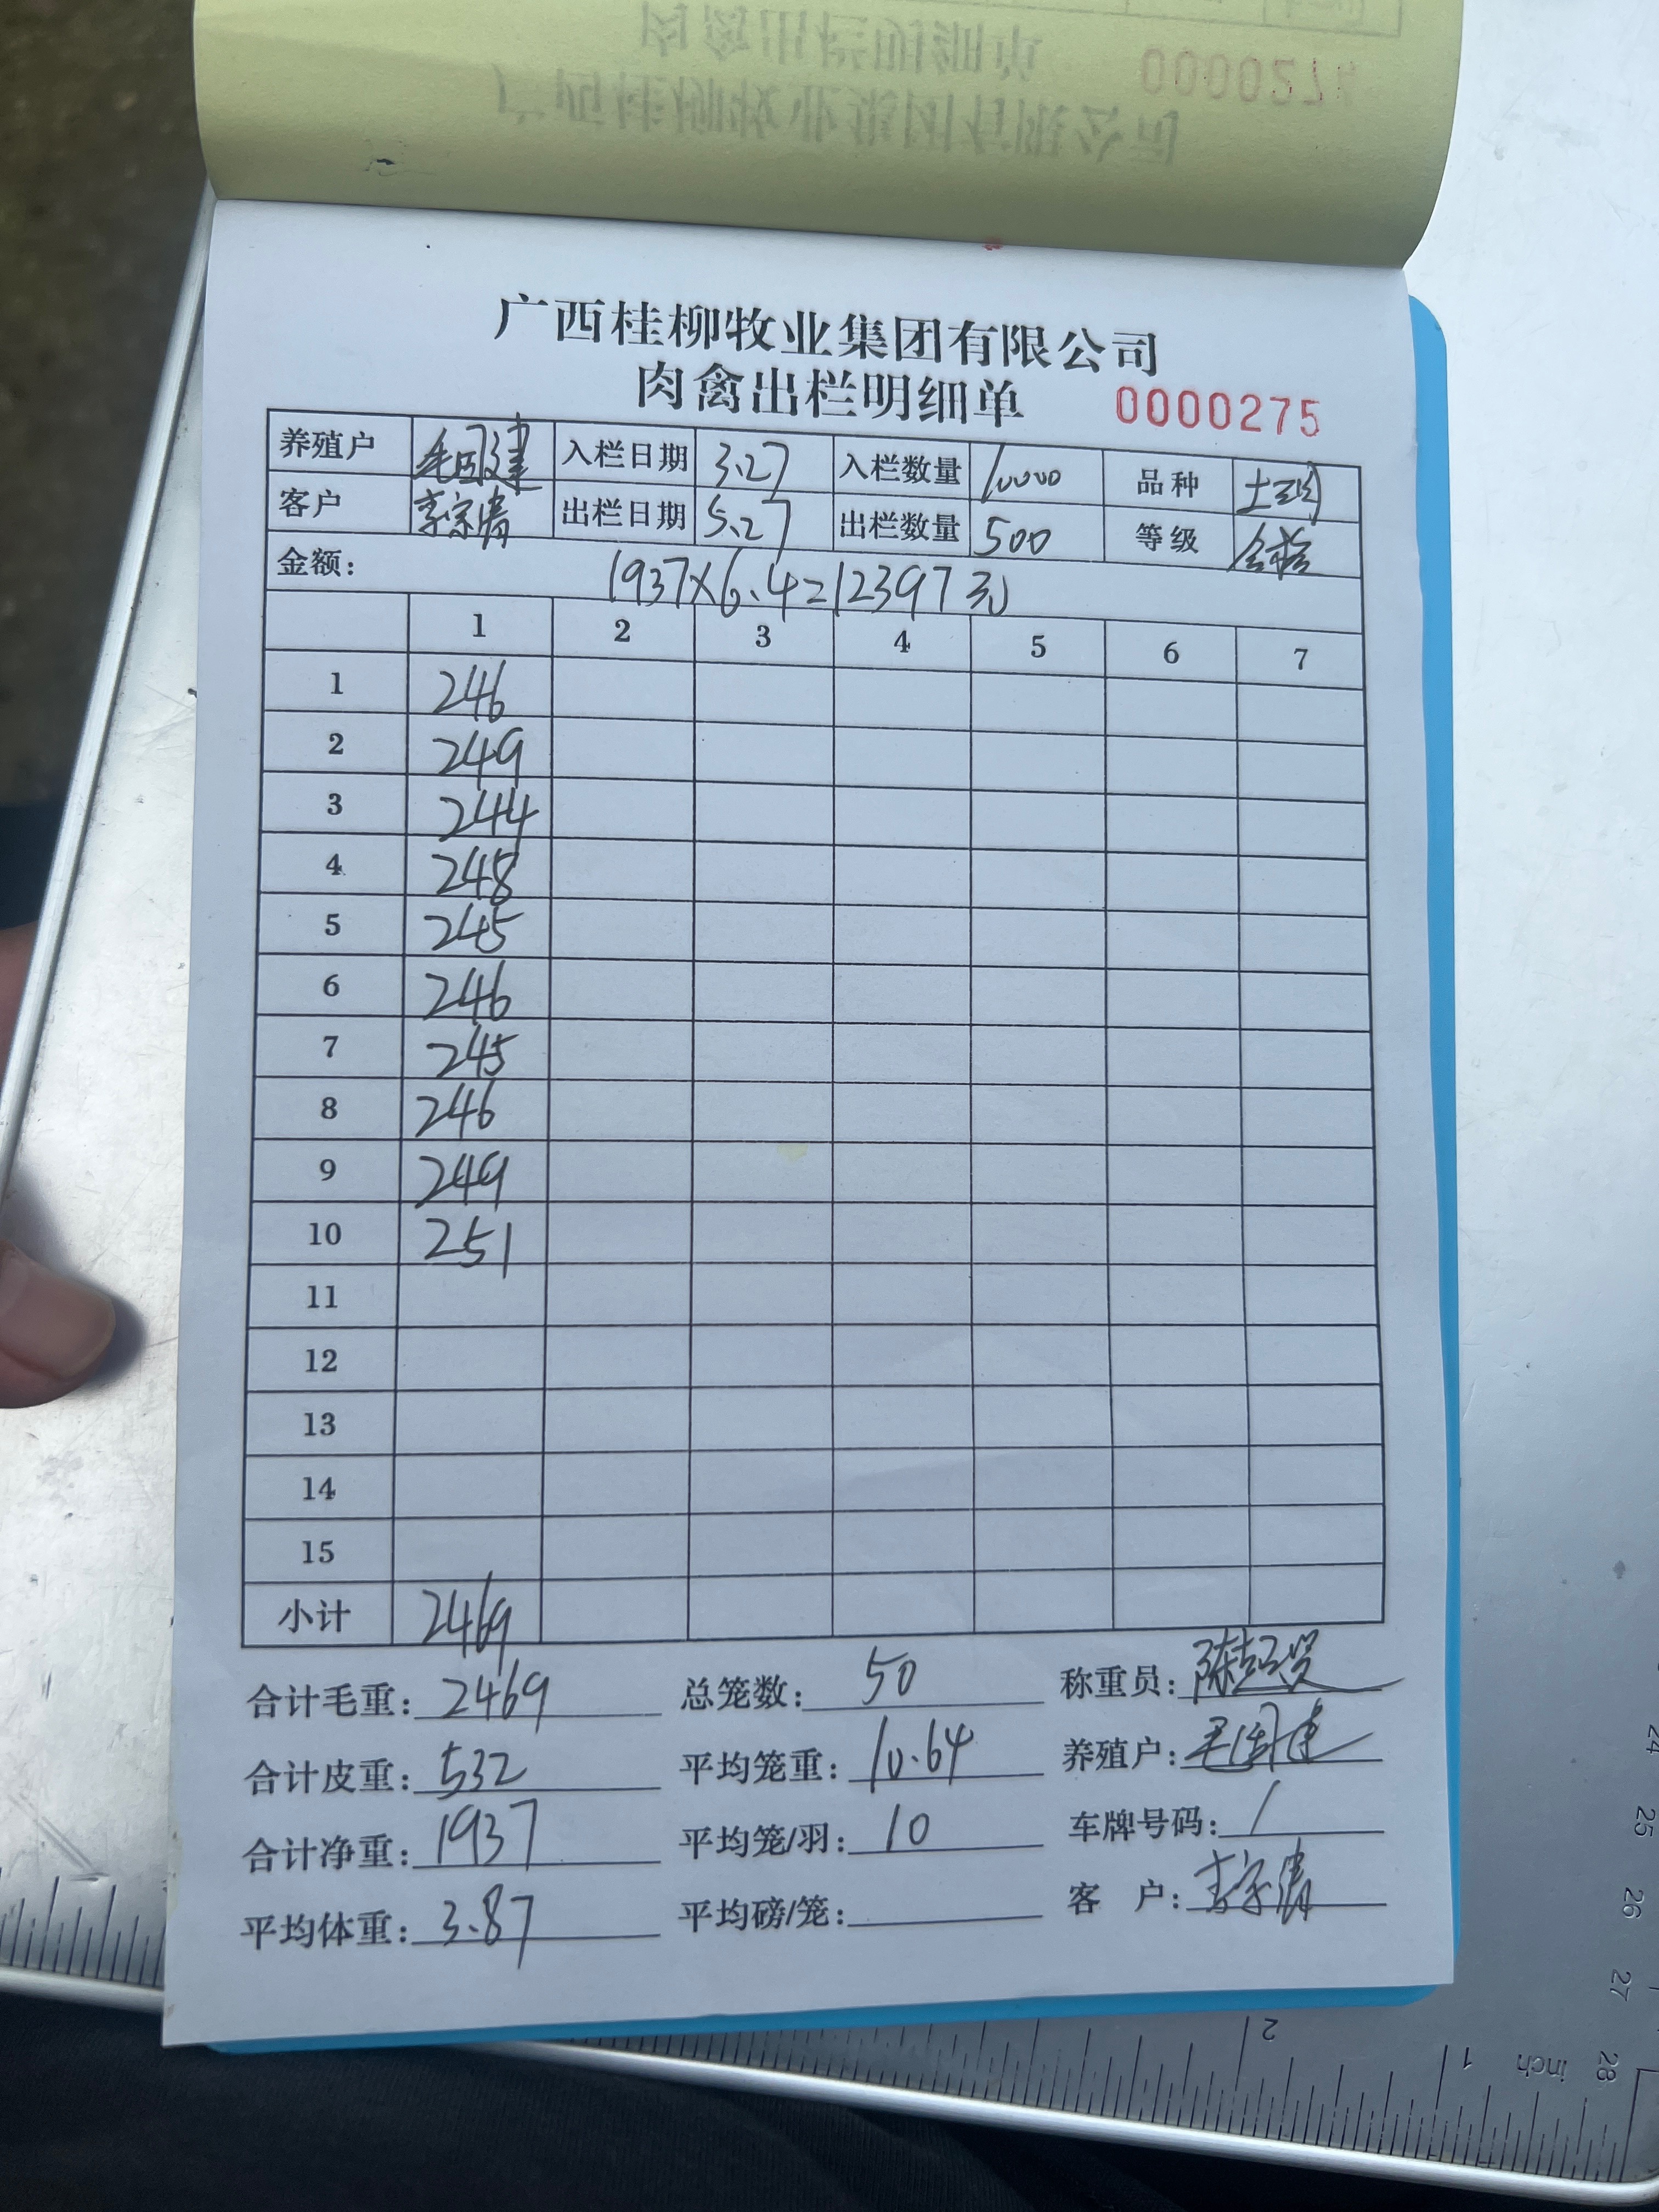 广西桂柳牧业集团有限公司
肉禽出栏明细单 0000275
养殖户 毛国建 入栏日期 3.27 入栏数量 10000 品种
客户 李宗清 出栏日期 5.27 出栏数量 500 等级 合格
金额: 1937×6.4=12397元
1 2 3 4 5 6 7
1 246
2 249
3 244
4 248
5 245
6 246
7 245
8 246
9 249
10 251
11
12
13
14
15
小计 2469
合计毛重: 2469 总笼数: 50 称重员:
合计皮重: 532 平均笼重: 10.64 养殖户: 毛国建
合计净重: 1937 平均笼/羽: 10 车牌号码: /
平均体重: 3.87 平均磅/笼: 客 户: 李宗清
24
25
26
27
28
2
1
inch